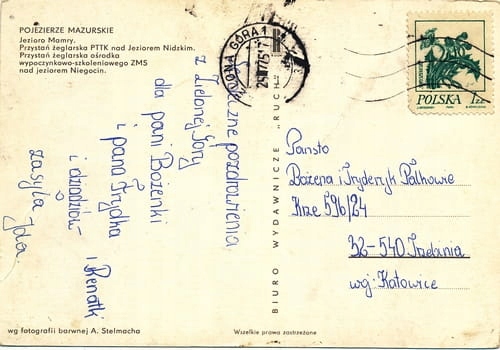 POJEZIERZE MAZURSKIE
Jezioro Mamry.
Przystań żeglarska PTTK nad Jeziorem Nidzkim.
Przystań żeglarska ośrodka
wypoczynkowo-szkoleniowego ZMS
nad jeziorem Niegocin.
ZIELONA GÓRA 1
POLSKA 1ZŁ
Serdeczne pozdrowienia
z Zielonej Góry
dla pani Bożenki
i pana Frydka
i Renatki
i dziadzków
zasyła Ida.
BIURO WYDAWNICZE „RUCH”
Państo
Bożena i Fryderyk Palkowie
Krze 596/24
32-540 Trzebinia
wg. Katowice
wg fotografii barwnej A. Stelmacha
Wszelkie prawa zastrzeżone